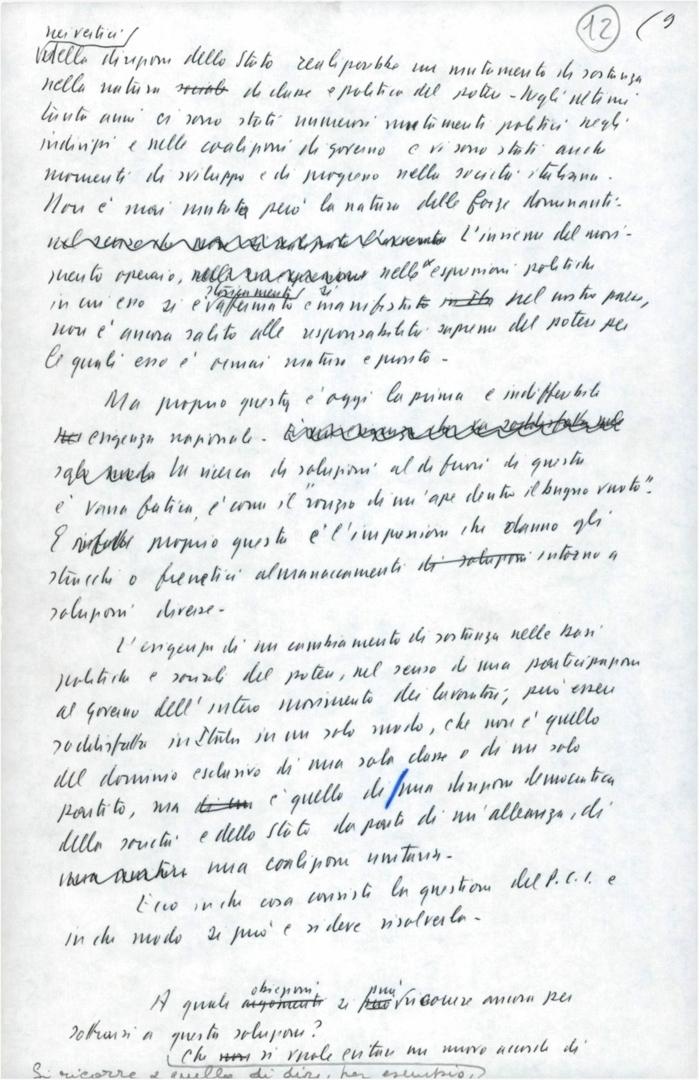 12 (9
nei vertici
della direzione dello Stato realizzerebbe un mutamento di sostanza
nella natura sociale di classe e politica del potere. Negli ultimi
trenta anni ci sono stati numerosi mutamenti politici negli
indirizzi e nelle coalizioni di governo e vi sono stati anche
momenti di sviluppo e di progresso nella società italiana.
Non è mai mutata però la natura delle forze dominanti.
L'insieme del movi-
mento operaio, nelle espressioni politiche
storicamente si
in cui esso si è raffermato e manifestato nel nostro paese,
non è ancora salito alle responsabilità supreme del potere per
le quali esso è ormai maturo e pronto.
Ma proprio questa è oggi la prima e indifferibile
esigenza nazionale.
La ricerca di soluzioni al di fuori di questa
è vana fatica, è come il "ronzio di un'ape dentro il bugno vuoto".
E infatti proprio questa è l'impressione che danno gli
stracchi o frenetici almanaccamenti di soluzioni intorno a
soluzioni diverse.
L'esigenza di un cambiamento di sostanza nelle basi
politiche e sociali del potere, nel senso di una partecipazione
al governo dell'intero movimento dei lavoratori, può essere
soddisfatta in Italia in un solo modo, che non è quello
del dominio esclusivo di una sola classe o di un solo
partito, ma è quello di una direzione democratica
della società e dello Stato da parte di un'alleanza, di
una coalizione unitaria.
Ecco in che cosa consiste la questione del P.C.I. e
in che modo si può e si deve risolverla.
obiezioni può
A quale argomento si può ricorrere ancora per
sottrarsi a questa soluzione?
Che non si vuole evitare un nuovo accordo di
Si ricorre a quella di dire, per esempio,